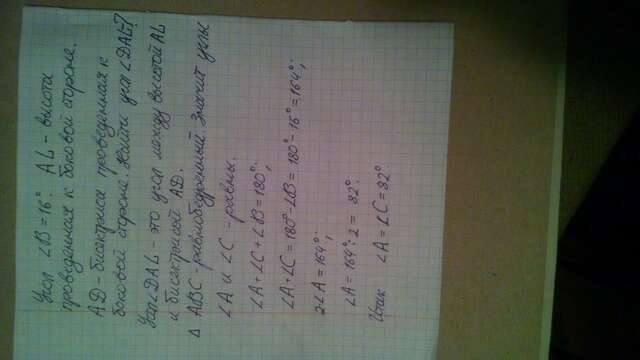 Угол ∠B=16°. AL - высота
проведенная к боковой стороне.
AD - биссектриса проведенная к
боковой стороне. Найти угол ∠DAL?
Угол ∠DAL - это угол между высотой AL
и биссектрисой AD.
Δ ABC - равнобедренный. Значит углы
∠A и ∠C - равны.
∠A+∠C+∠B=180°;
∠A+∠C=180°-∠B = 180°-16°=164°;
2∠A=164°;
∠A=164°:2 = 82°
Итак ∠A=∠C=82°